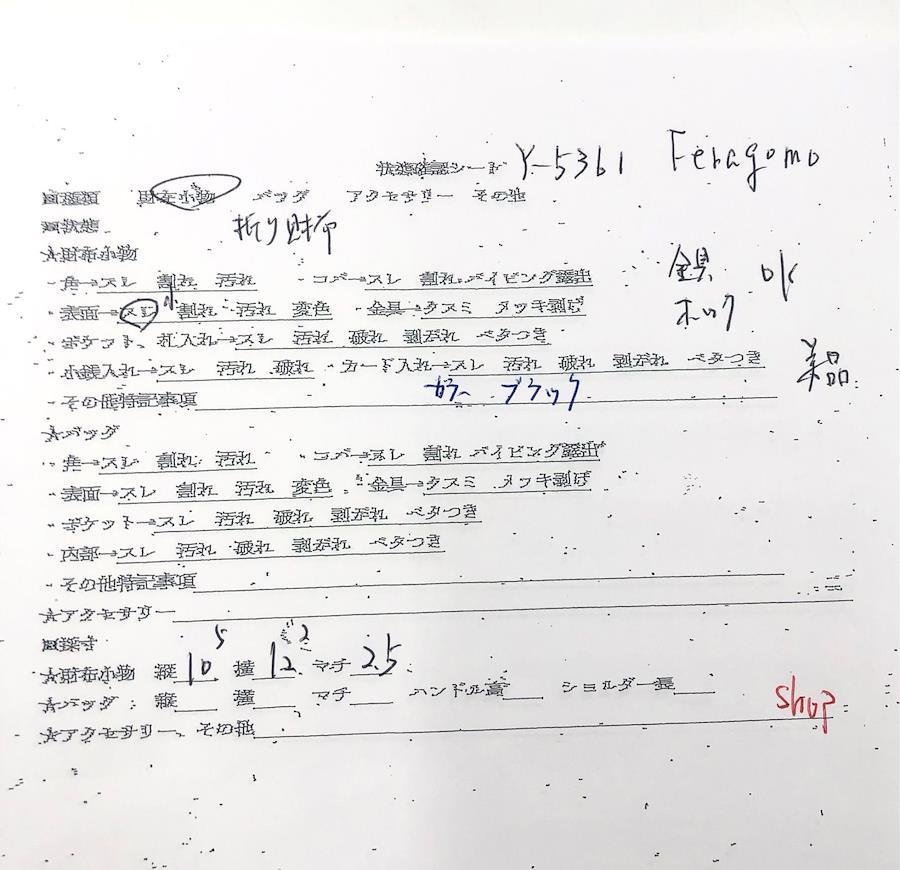 状態確認シート Y-5361 Feragomo
□種類 財布小物 バッグ アクセサリー その他
□状態 折り財布
☆財布小物
・角→スレ 割れ 汚れ ・コバ→スレ 割れ パイピング露出 金具 ok
・表面→スレ 割れ 汚れ 変色 ・金具→クスミ メッキ剥げ ホック
・ポケット、札入れ→スレ 汚れ 破れ 剥がれ ベタつき
・小銭入れ→スレ 汚れ 破れ ・カード入れ→スレ 汚れ 破れ 剥がれ ベタつき 美品
・その他特記事項 カラー ブラック
☆バッグ
・角→スレ 割れ 汚れ ・コバ→スレ 割れ パイピング露出
・表面→スレ 割れ 汚れ 変色 ・金具→クスミ メッキ剥げ
・ポケット→スレ 汚れ 破れ 剥がれ ベタつき
・内部→スレ 汚れ 破れ 剥がれ ベタつき
・その他特記事項
☆アクセサリー
□採寸 5 2
☆財布小物 縦 10 横 12 マチ 2.5
☆バッグ：縦 横 マチ ハンドル高 ショルダー長
shop
☆アクセサリー、その他